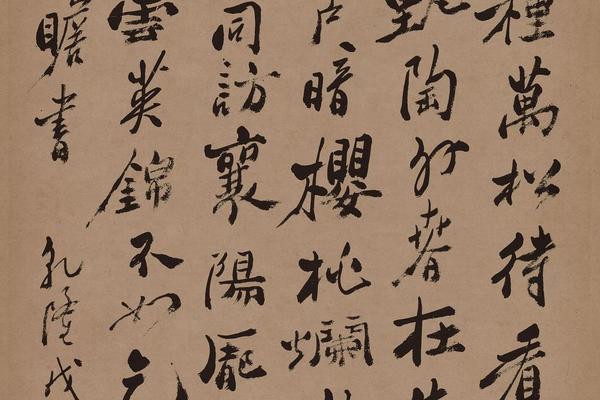 種萬松待看
甄陶外春在
戶暗櫻桃爛
同訪襄陽龐
雲英錦不如
瞻書 乾隆戊